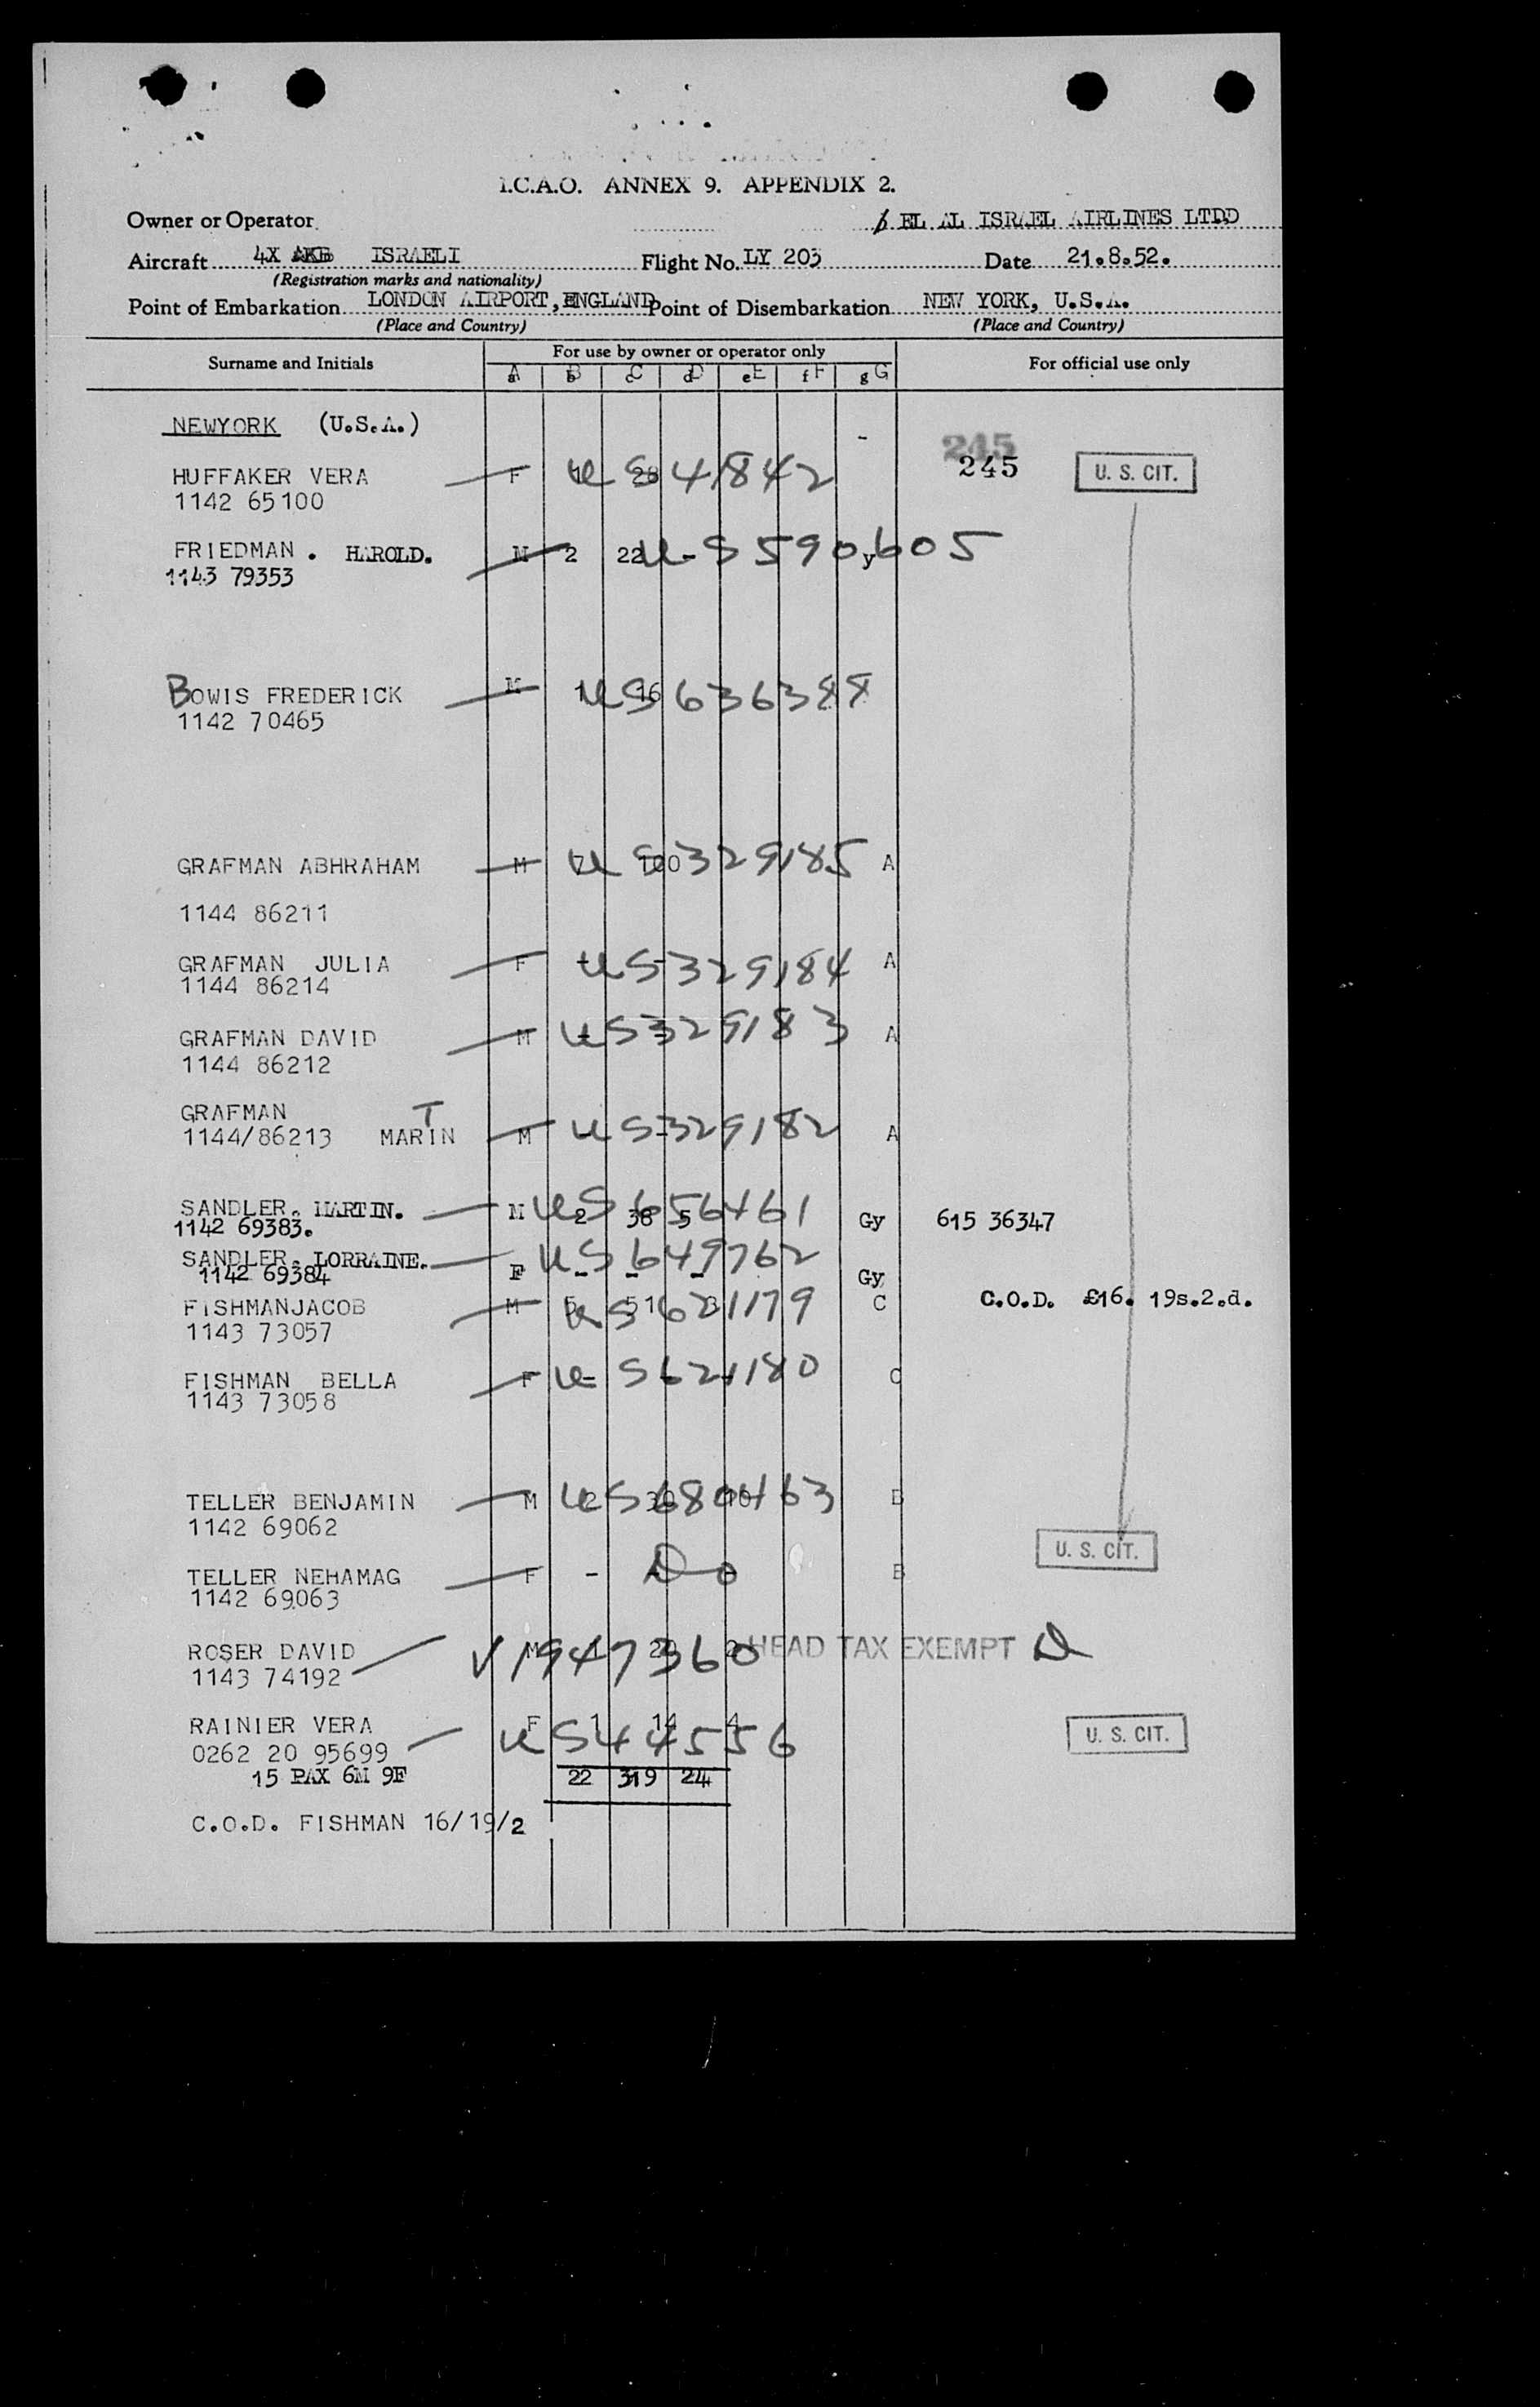 I.C.A.O. ANNEX 9. APPENDIX 2.
Owner or Operator EL AL ISRAEL AIRLINES LTDD
Aircraft 4X AKB ISRAELI Flight No. LY 203 Date 21.8.52.
(Registration marks and nationality)
Point of Embarkation LONDON AIRPORT, ENGLAND Point of Disembarkation NEW YORK, U.S.A.
(Place and Country) (Place and Country)
Surname and Initials For use by owner or operator only For official use only
a A b B c C d D e E f F g G
NEWYORK (U.S.A.) -
245
HUFFAKER VERA F 1 28 US 41842 245 U. S. CIT.
1142 65100
FRIEDMAN . HAROLD. M 2 22 US 590605 y
1143 79353
BOWIS FREDERICK M 1 16 US 636388
1142 70465
GRAFMAN ABHRAHAM M 7 100 US 329185 A
1144 86211
GRAFMAN JULIA F - - US 329184 A
1144 86214
GRAFMAN DAVID M - - US 329183 A
1144 86212
GRAFMAN T
1144/86213 MARTIN M - - US 329182 A
SANDLER. MARTIN. M 2 38 5 US 656461 Gy 615 36347
1142 69383.
SANDLER. LORRAINE. F - - - US 649762 Gy
1142 69384
FISHMANJACOB M 5 51 3 US 621179 C C.O.D. £16. 19s.2.d.
1143 73057
FISHMAN BELLA F - US 621180 C
1143 73058
TELLER BENJAMIN M 2 30 10 US 680463 B
1142 69062 U. S. CIT.
TELLER NEHAMAG F - - - Do B
1142 69063
ROSER DAVID M 1 20 2 V1947360 HEAD TAX EXEMPT
1143 74192
RAINIER VERA F 1 14 4 US 44556 U. S. CIT.
0262 20 95699
15 PAX 6M 9F 22 319 24
C.O.D. FISHMAN 16/19/2